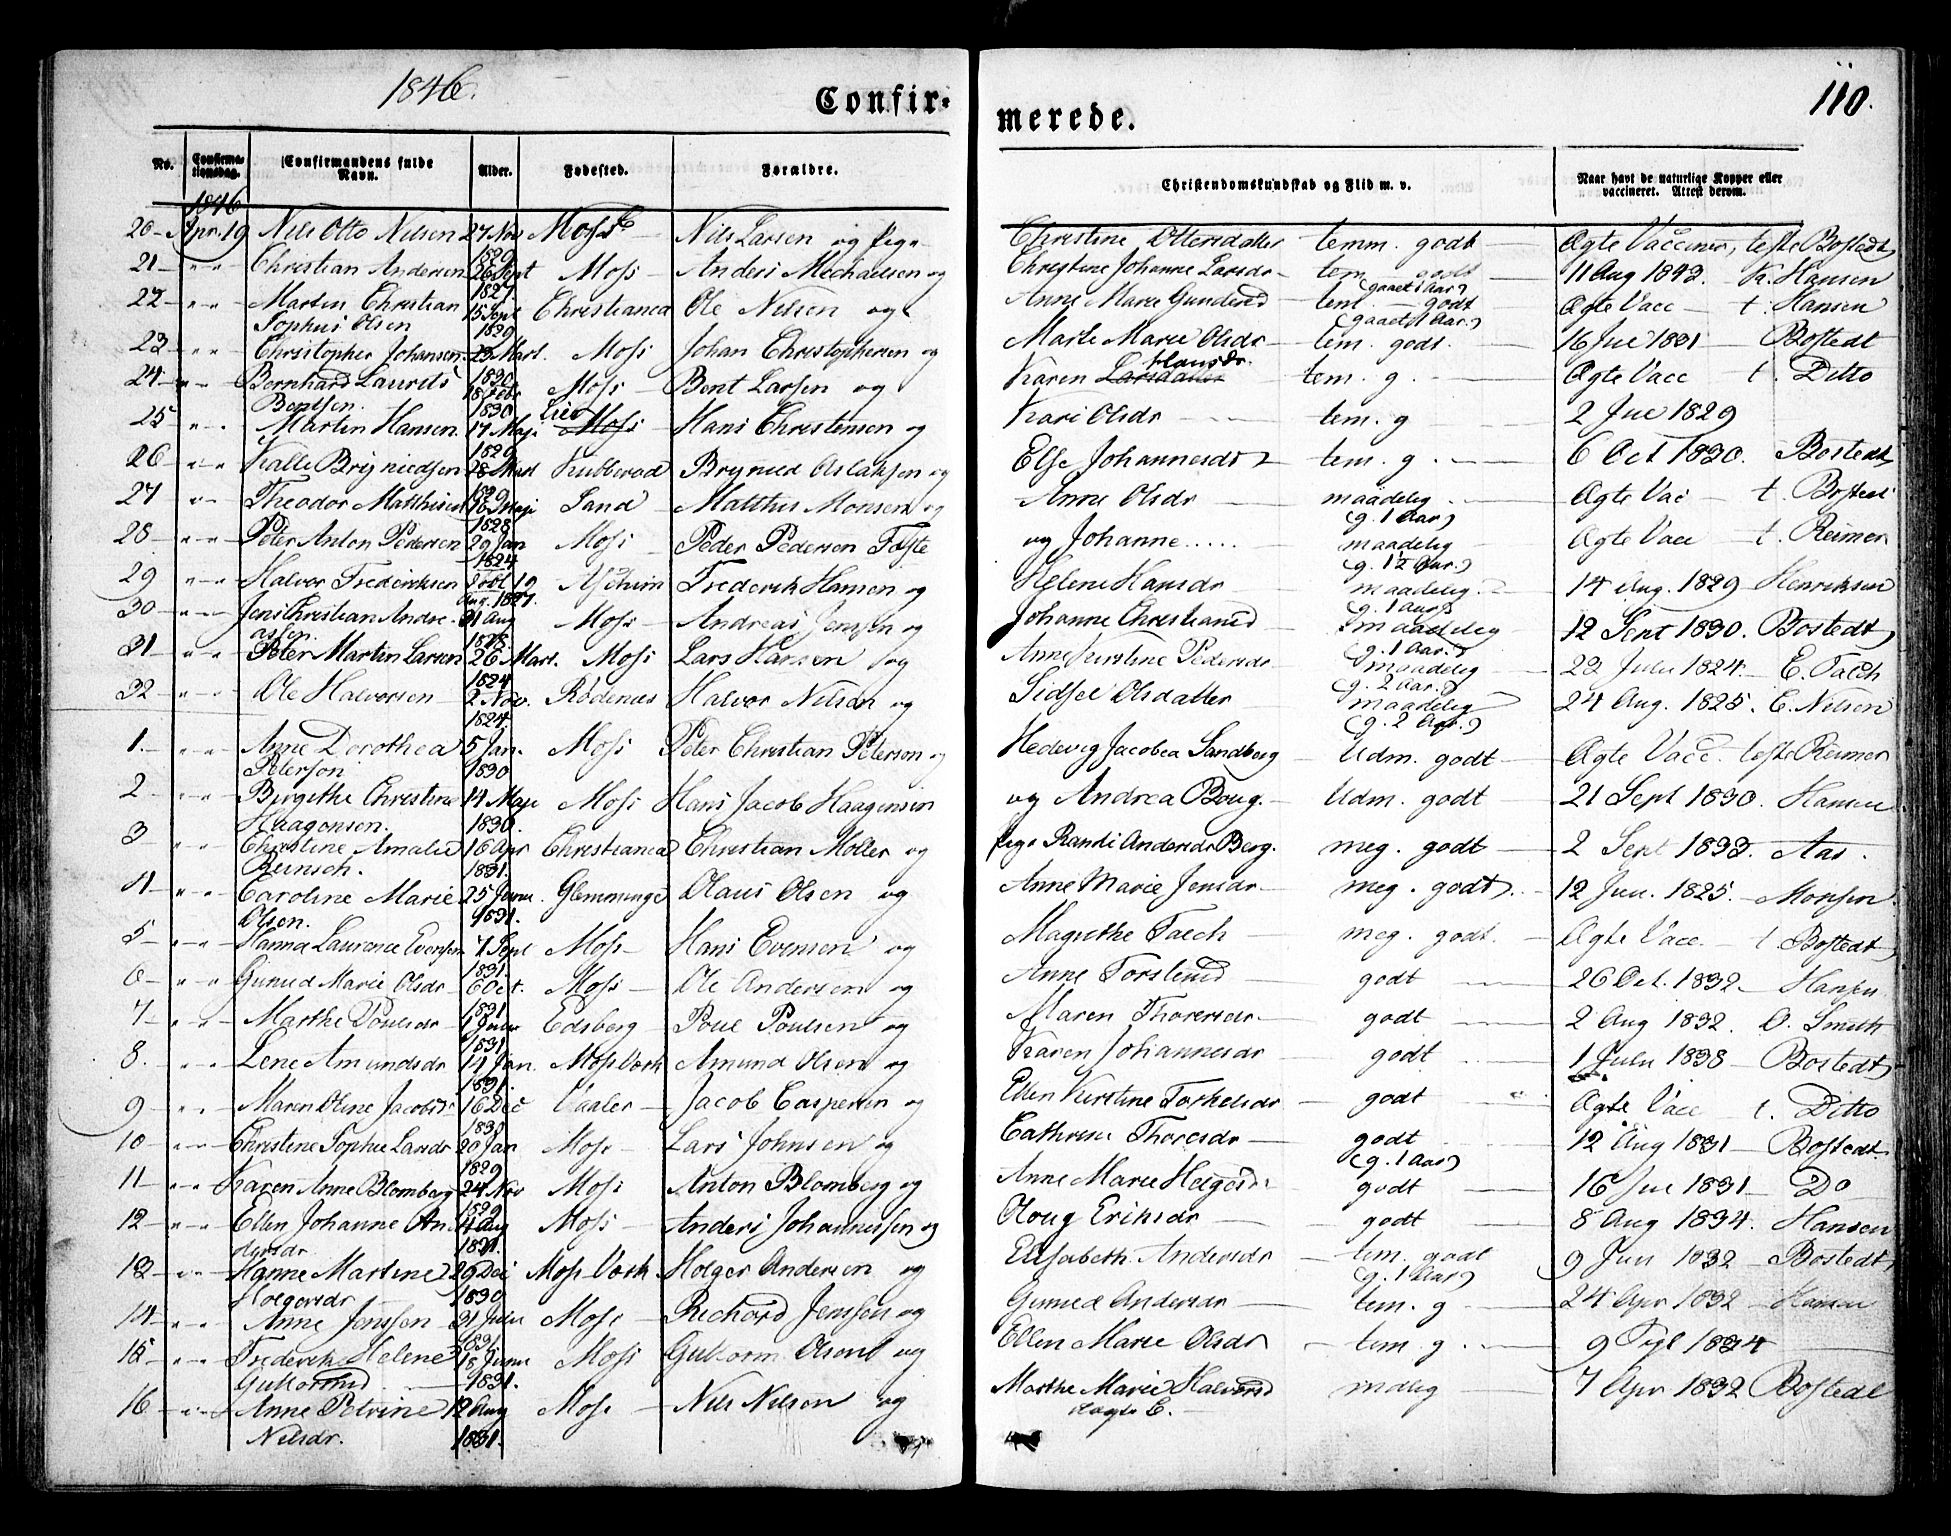 1846.
Confir-
merede.
110.
No. Confirma-tionsdag. Confirmandens fulde Navn. Alder. Fødested. Forældre. Christendomskundskab og Flid m. v. Naar havt de naturlige Kopper eller vaccineret. Attest derom.
1846
20 Apr. 19 Nils Otto Nilsen 27 Nov 1829 Moss Nils Larsen og Pige Christine Ottersdatter temm. godt Ægte Vacciner, teste Bostedt
21 " " Christian Andersen 26 Sept 1827 Moss Anders Michaelsen og Christine Johanne Larsdr tem godt (gaaet 1 Aar) 11 Aug 1843. Hansen
22 " " Martin Christian Sophus Olsen 15 Sept 1829 Christiania Ole Nilsen og Anne Marie Gundersd tem. godt (gaaet 1 Aar.) Ægte Vacc t. Hansen
23 " " Christopher Johansen 23 Mart. 1830 Moss Johan Christophersen og Marte Marie Olsdr tem. godt. 16 Jul 1831 Bostedt
24 " " Bernhard Laurits Bentsen. 18 Febr 1830 Moss Bent Larsen og Karen Larsdatter Hansdr. tem. g. Ægte Vacc t. Ditto
25 " " Martin Hansen. 17 Maji 1829 Moss Lier Hans Christensen og Kari Olsdr tem. g 2 Jul 1829
26 " " Kalle Brynildsen 28 Mart 1829 Krabberød Brynild Aslaksen og Else Johannesdr tem. g. 6 Oct 1830. Bostedt
27 " " Theodor Matthisen 16 Maji 1828 Sand Matthis Monsen og Anne Olsdr maadelig (g. 1 Aar) Ægte Vac t. Bostedt
28 " " Peter Anton Pedersen 29 Jan 1824 Moss Peder Pedersen Toste og Johanne ..... maadelig (g. 1½ Aar.) Ægte Vacc t. Reimer
29 " " Halvor Frederiksen Døbt 19 Aug. 1827. Frederik Hansen og Helene Hansdr maadelig. (g. 1 Aar) 14 Aug. 1829 Henriksen
30 " " Jens Christian Andreassen. 31 Aug 1828 Moss Andreas Jensen og Johanne Christiansd maadelig (g. 1 Aar.) 12 Sept 1830. Bostedt
31 " " Peter Martin Larsen 26 Mart. 1824 Moss Lars Hansen og Anne Kirstine Pedersdr maadelig (g. 2 Aar.) 23 Julii 1824. E. Falch
32 " " Ole Halvorsen 2 Nov. 1824 Rødenæs Halvor Nilsen og Sidsel Olsdatter maadelig (g. 2 Aar.) 24 Aug. 1825. E. Nilsen
1. " " Anne Dorothea Peterson 5 Jan. 1830 Moss Peter Christian Peterson og Hedevig Jacobea Sandberg Udm. godt Ægte Vacc. teste Reimer
2 " " Birgithe Christine Haagensen. 14 Maji 1830. Moss Hans Jacob Haagensen og Andrea Boug. Udm. godt 21 Sept 1830. Hansen
3 " " Christine Amalie Reinsch. 16 Apr 1831. Christiania Christian Møller og Pige Randi Andersdr Berg. meg. godt 2 Sept 1833. Aas.
4 " " Caroline Marie Olsen. 25 Junii 1831. Glemminge Olaus Olsen og Anne Marie Jensdr meg. godt. 12 Jun. 1825. Monsen.
5 " " Hanna Laurence Evensen 7 Sept 1831. Moss Hans Evensen og Magrethe Falch meg. godt. Ægte Vacc. t Bostedt
6 " " Gunild Marie Olsdr 6 Oct. 1831 Moss Ole Andersen og Anne Torslund godt 26 Oct. 1832. Hansen
7 " " Marthe Poulsdr 1 Julii 1831 Edsberg Poul Poulsen og Maren Thoversdr. godt 2 Aug 1832. O. Smith
8. " " Lene Amundsdr 14 Jan. 1831. Moss Værk Amund Olsen og Karen Johannesdr godt 1 Julii 1838 Bostedt
9 " " Maren Oline Jacobsdr 16 Dec 1830 Vaaler Jacob Caspersen og Ellen Kirstine Torkelsdr godt Ægte Vacc t. Ditto
10 " " Christine Sophie Larsdr 20 Jan 1829 Moss Lars Johnsen og Cathrine Thoresdr godt (g. 1 Aar) 12 Aug 1831 Bostedt
11 " " Karen Anne Blomberg 24 Nov 1829 Moss Anton Blomberg og Anne Marie Holgersdr godt 16 Jul 1831 Do
12 " " Ellen Johanne Andersdr 4 Aug 1831. Moss Anders Johannessen og Houg Eriksdr godt 8 Aug 1834. Hansen
13 " " Hanne Martine Holgersdr 29 Dec 1830 Moss Værk Holger Andersen og Elisabeth Andersdr tem. godt (g. 1 Aar) 9 Jun 1832 Bostedt
14 " " Anne Jenssen 31 Julii 1831. Moss Richard Jenssen og Gunild Andersdr tem. g 24 Apr 1832 Hansen
15 " " Frederikke Helene Guttormsd 18 Junii 1831. Moss Guttorm Olsen og Ellen Marie Olsdr tem g. 9 1834
16 " " Anne Petrine Nilsdr. 12 Aug 1831. Moss Nils Nilsen og Marthe Marie Halvorsd Ægte E. mdlig 7 Apr 1832 Bostedt